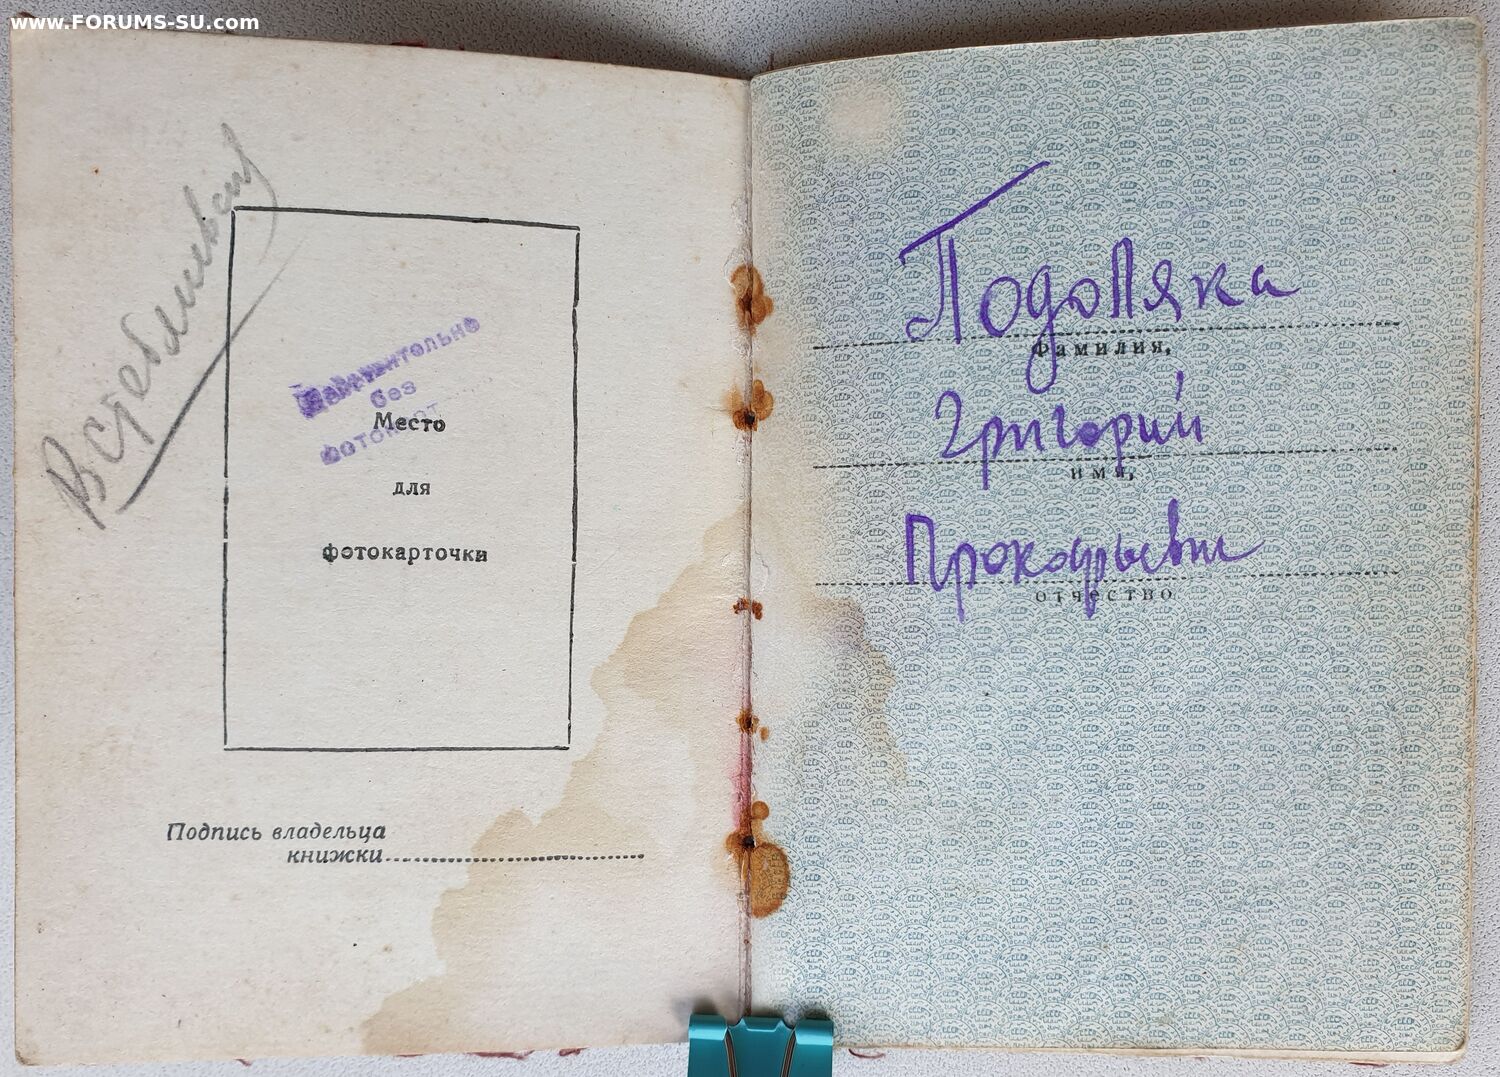 www.FORUMS-SU.com
Действительно
без
Место
для
фотокарточки
Подпись владельца
книжки
Подопяка
Фамилия,
Григорий
имя,
отчество